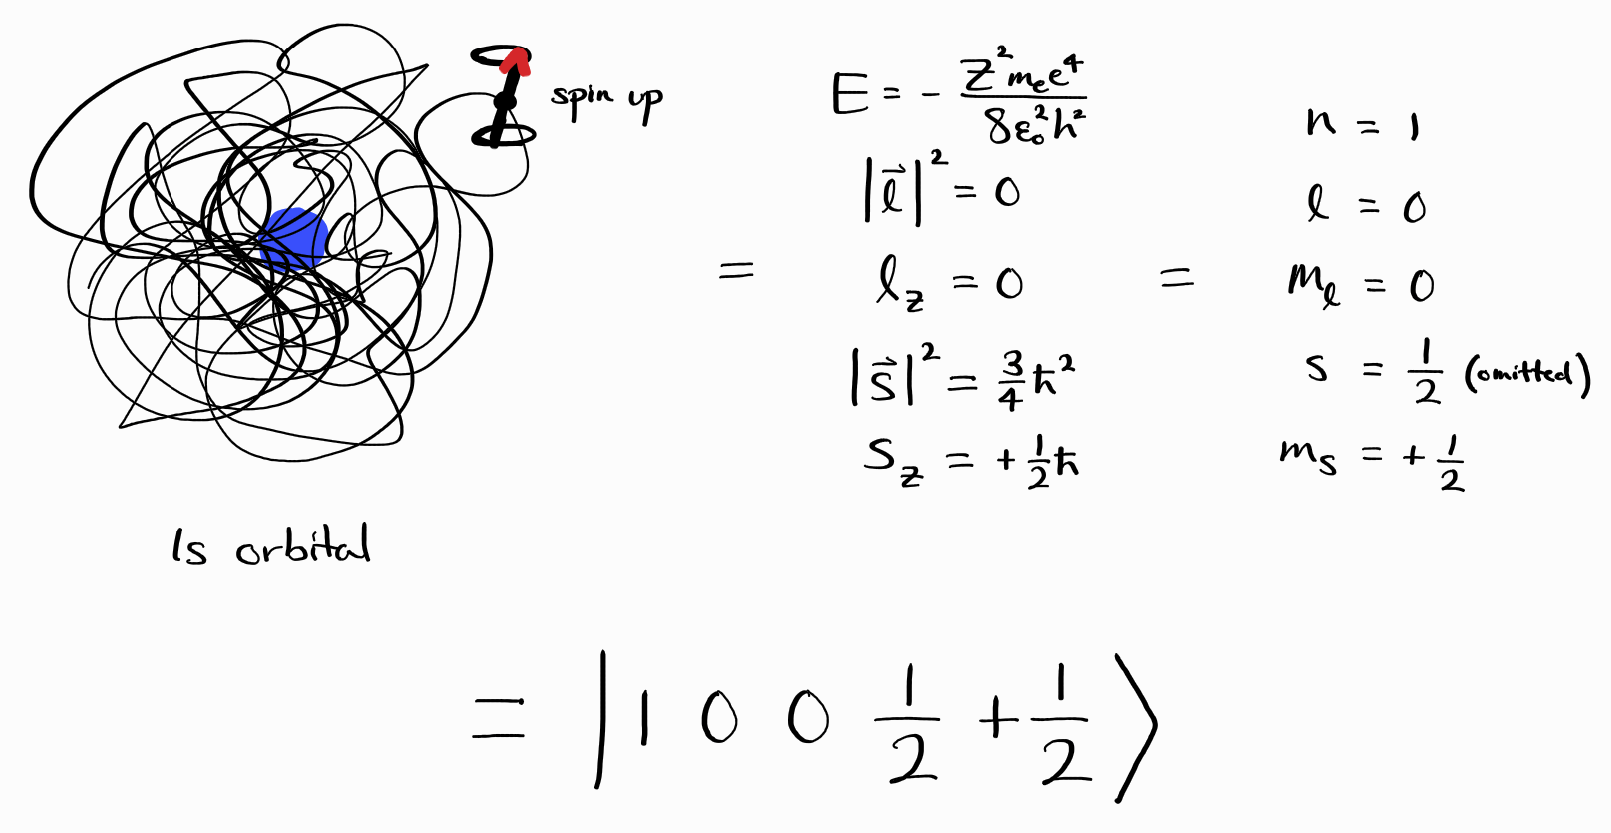 spin up
1s orbital
=
E = - Z²mₑe⁴ / 8ε₀²h²
|l⃗|² = 0
l_z = 0
|s⃗|² = 3/4 ħ²
S_z = + 1/2 ħ
=
n = 1
l = 0
m_l = 0
s = 1/2 (omitted)
m_s = + 1/2
= | 1 0 0 1/2 + 1/2 ⟩